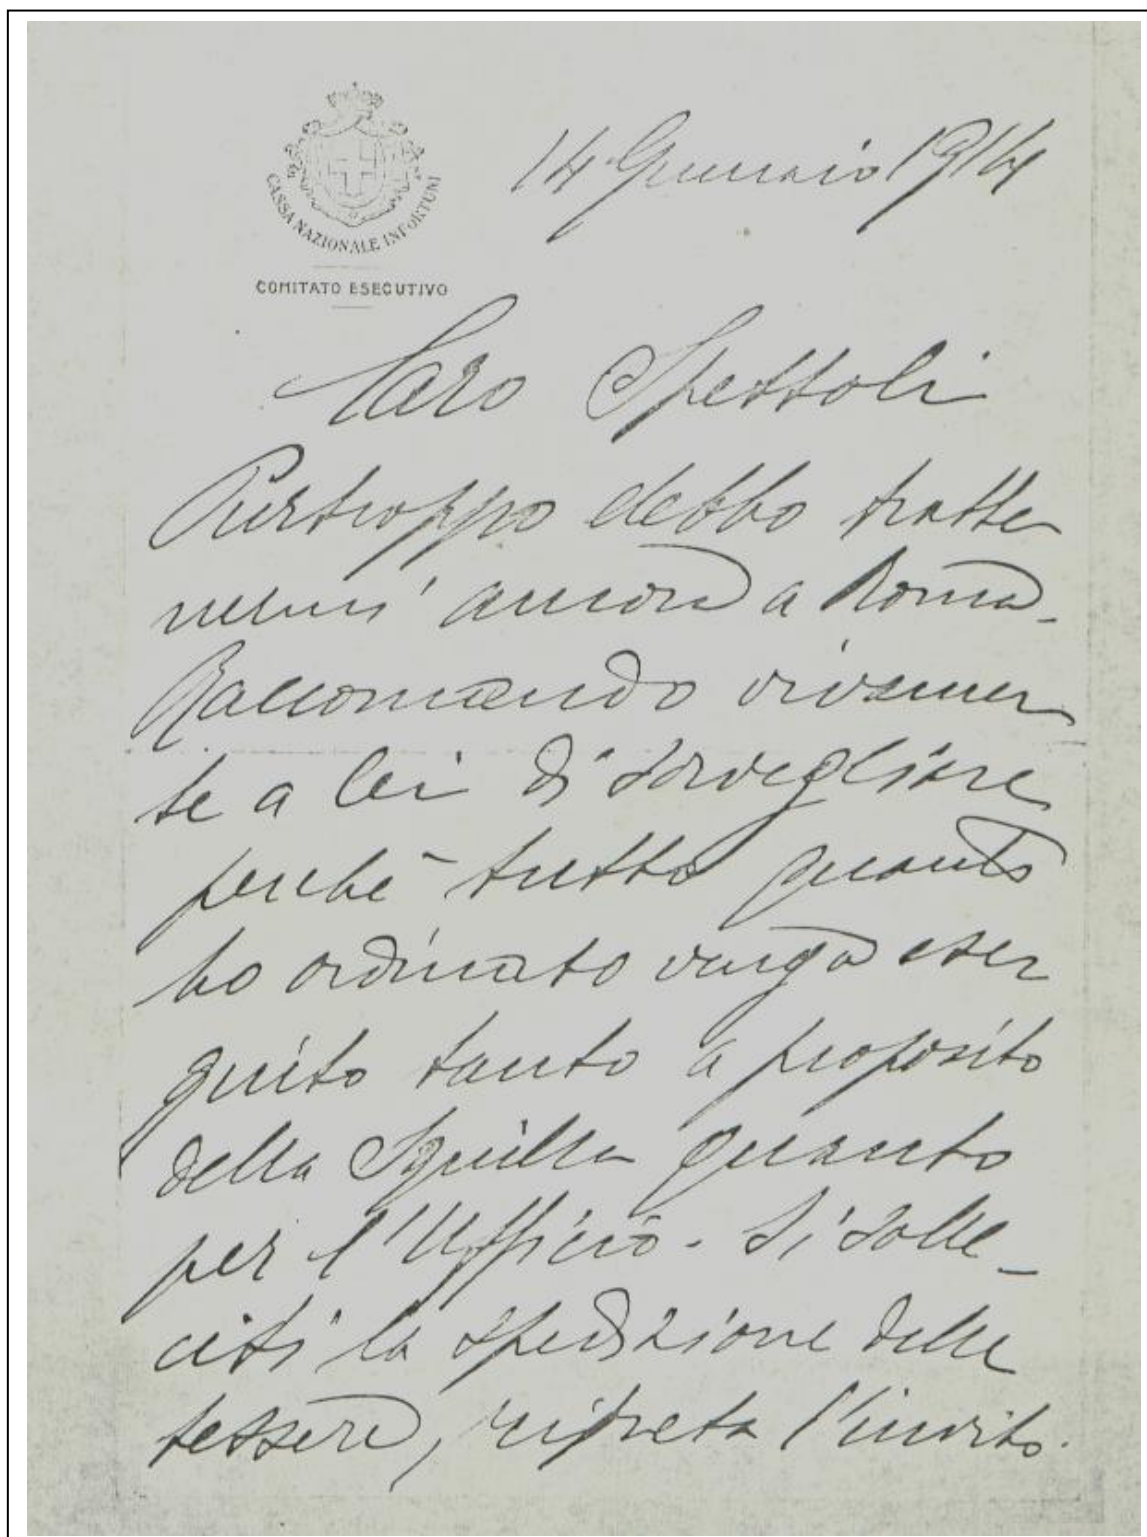 CASSA NAZIONALE INFORTUNI
COMITATO ESECUTIVO
14 Gennaio 1914
Caro Spettoli
Purtroppo debbo tratte
nermi ancora a Roma.
Raccomando vivamen
te a lei di sorvegliare
perchè tutto quanto
ho ordinato venga ese
guito tanto a proposito
della Squilla quanto
per l'Ufficio - Si solle_
citi la spedizione delle
tessere, ripeta l'invito.